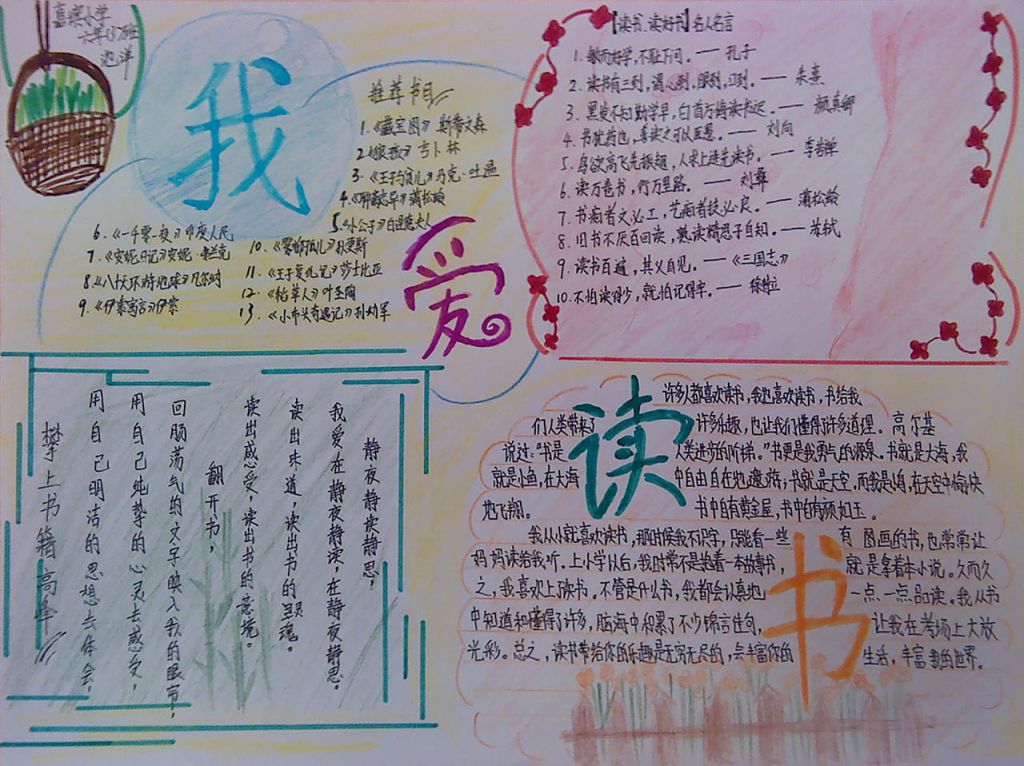 嘉滨小学
六年(3)班
我
爱
读
书
推荐书目
1.《藏宝图》斯蒂文森
3.《王子与贫儿》马克·吐温
4.《聊斋志异》蒲松龄
5.《小公子》白涅德夫人
6.《一千零一夜》印度人民
7.《安妮日记》安妮·弗兰克
8.《八十天环游地球》凡尔纳
9.《伊索寓言》伊索
10.《雾都孤儿》狄更斯
11.《王子复仇记》莎士比亚
12.《稻草人》叶圣陶
13.《小布头奇遇记》孙幼军
【读书、读好书】名人名言
1.敏而好学,不耻下问。——孔子
2.读书有三到,谓心到,眼到,口到。——朱熹
3.黑发不知勤学早,白首方悔读书迟。——颜真卿
4.书犹药也,善读之可以医愚。——刘向
5.鸟欲高飞先振翅,人求上进先读书。——李若禅
6.读万卷书,行万里路。——刘彝
7.书痴者文必工,艺痴者技必良。——蒲松龄
8.旧书不厌百回读,熟读精思子自知。——苏轼
9.读书百遍,其义自见。——《三国志》
10.不怕读得少,就怕记得牢。——徐特立
静夜静读静思,
我爱在静夜静读,在静夜静思。
读出味道,读出书的灵魂。
读出感受,读出书的意境。
翻开书,
回肠荡气的文字映入我的眼帘,
用自己纯挚的心灵去感受,
用自己明洁的思想去体会,
攀上书籍高峰
许多人都喜欢读书,我也喜欢读书,书给我
们人类带来了许多乐趣,也让我们懂得许多道理。高尔基
说过:“书是人类进步的阶梯。”书更是我勇气的源泉。书就是大海,我
就是小鱼,在大海中自由自在地遨游;书就是天空,而我是小鸟,在天空中愉快
地飞翔。书中自有黄金屋,书中自有颜如玉。
我从小就喜欢读书,那时候我不识字,只能看一些有图画的书,也常常让
妈妈读给我听。上小学以后,我时常不是抱着一本故事书,就是拿着本小说。久而久
之,我喜欢上读书。不管是什么书,我都会认真地一点一点品读。我从书
中知道和懂得了许多,脑海中积累了不少锦言佳句,让我在考场上大放
光彩。总之,读书带给你的乐趣是无穷无尽的,会丰富你的生活,丰富我的世界。